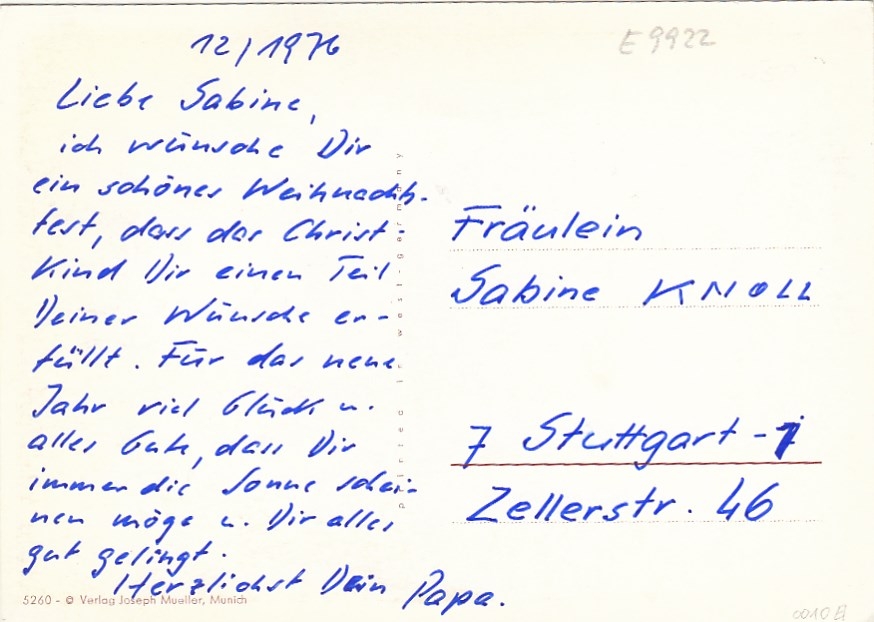 12/1976
E 9922
Liebe Sabine,
ich wünsche Dir
ein schönes Weihnachts-
fest, dass das Christ-
Kind Dir einen Teil
Deiner Wünsche er-
füllt. Für das neue
Jahr viel Glück u.
alles Gute, dass Dir
immer die Sonne schei-
nen möge u. Dir alles
gut gelingt.
Herzlichst Dein Papa.
5260 - © Verlag Joseph Mueller, Munich
printed in west-Germany
Fräulein
Sabine KNOLL
7 Stuttgart-1
Zellerstr. 46